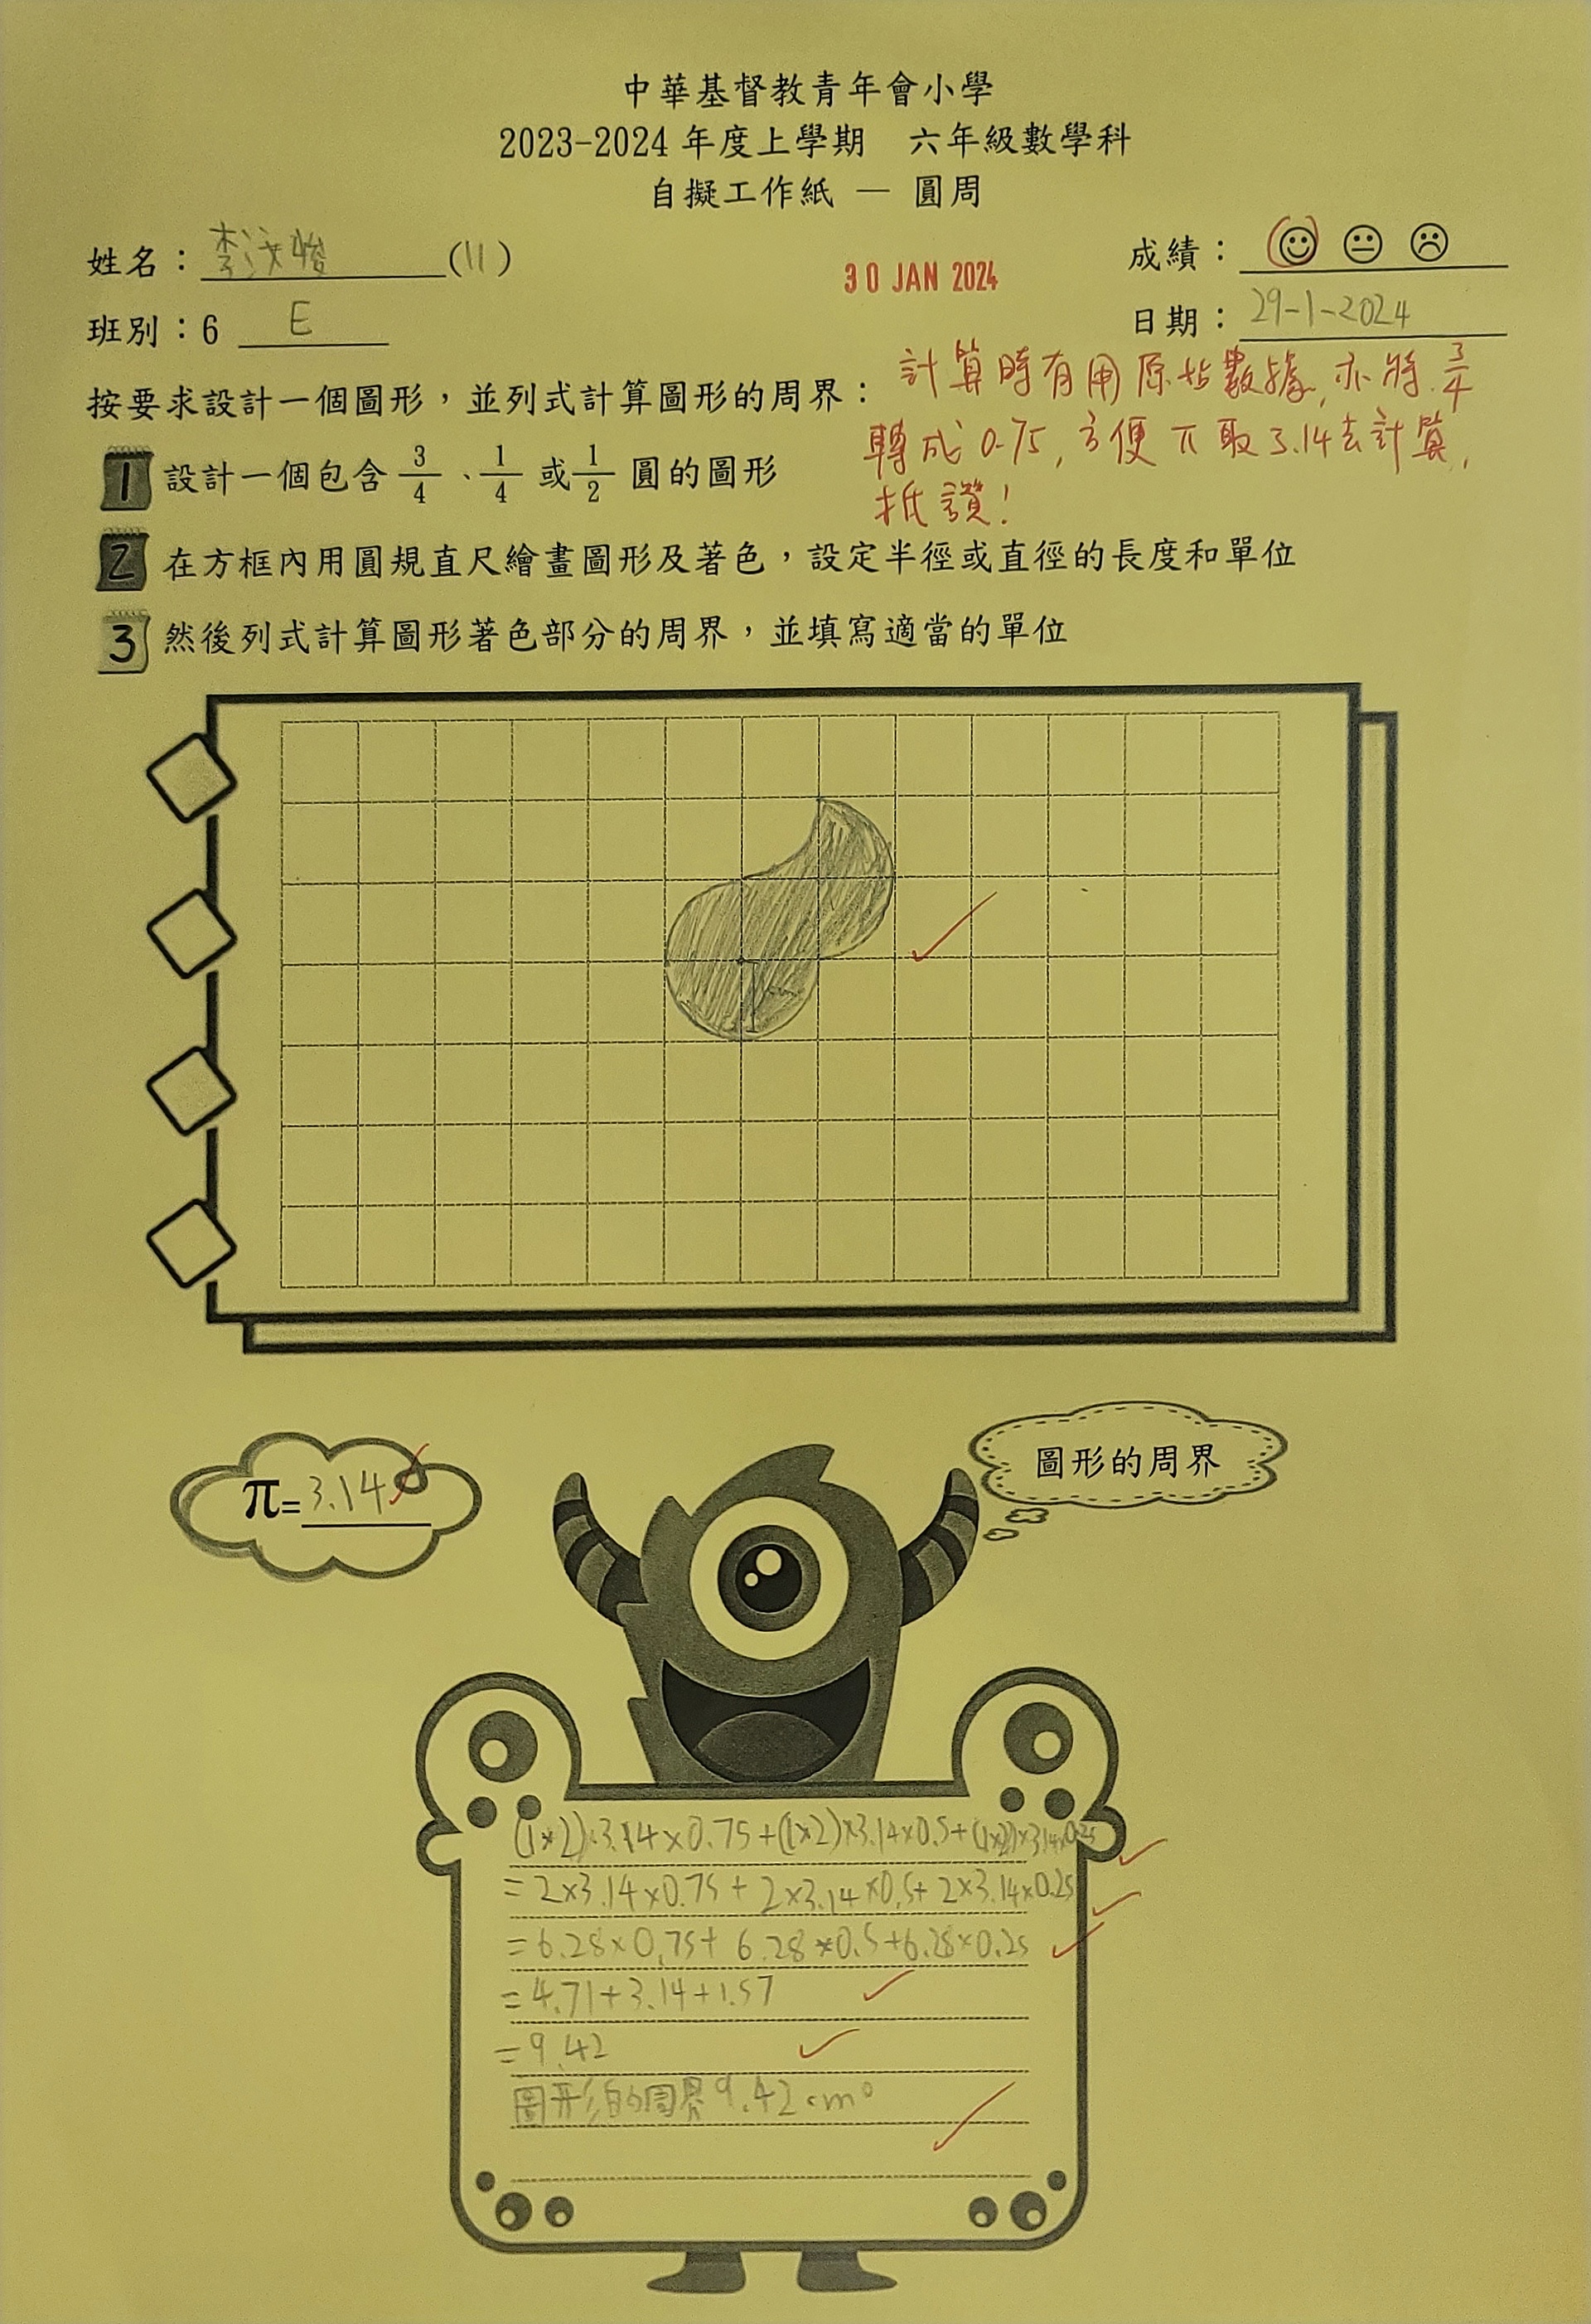 中華基督教青年會小學
2023-2024 年度上學期 六年級數學科
自擬工作紙 — 圓周
姓名：李汶悛 (11) 成績：☺ 😐 ☹
30 JAN 2024
班別：6 E 日期：29-1-2024
按要求設計一個圖形，並列式計算圖形的周界：
計算時有用原始數據，亦將 3/4
轉成 0.75，方便 π 取 3.14去計算，
抵讚！
1 設計一個包含 3/4、1/4 或 1/2 圓的圖形
2 在方框內用圓規直尺繪畫圖形及著色，設定半徑或直徑的長度和單位
3 然後列式計算圖形著色部分的周界，並填寫適當的單位
π=3.14
圖形的周界
(1×2)×3.14×0.75+(1×2)×3.14×0.5+(1×2)×3.14×0.25
=2×3.14×0.75+2×3.14×0.5+2×3.14×0.25
=6.28×0.75+6.28×0.5+6.28×0.25
=4.71+3.14+1.57
=9.42
圖形的周界9.42cm。